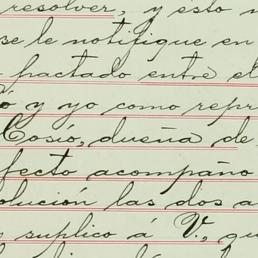 resolver, y ésto n
se le notifique en
pactado entre el
ó y yo como repre
Cosió, dueña de
fecto acompaño
olución las dos a
suplico á V., qu